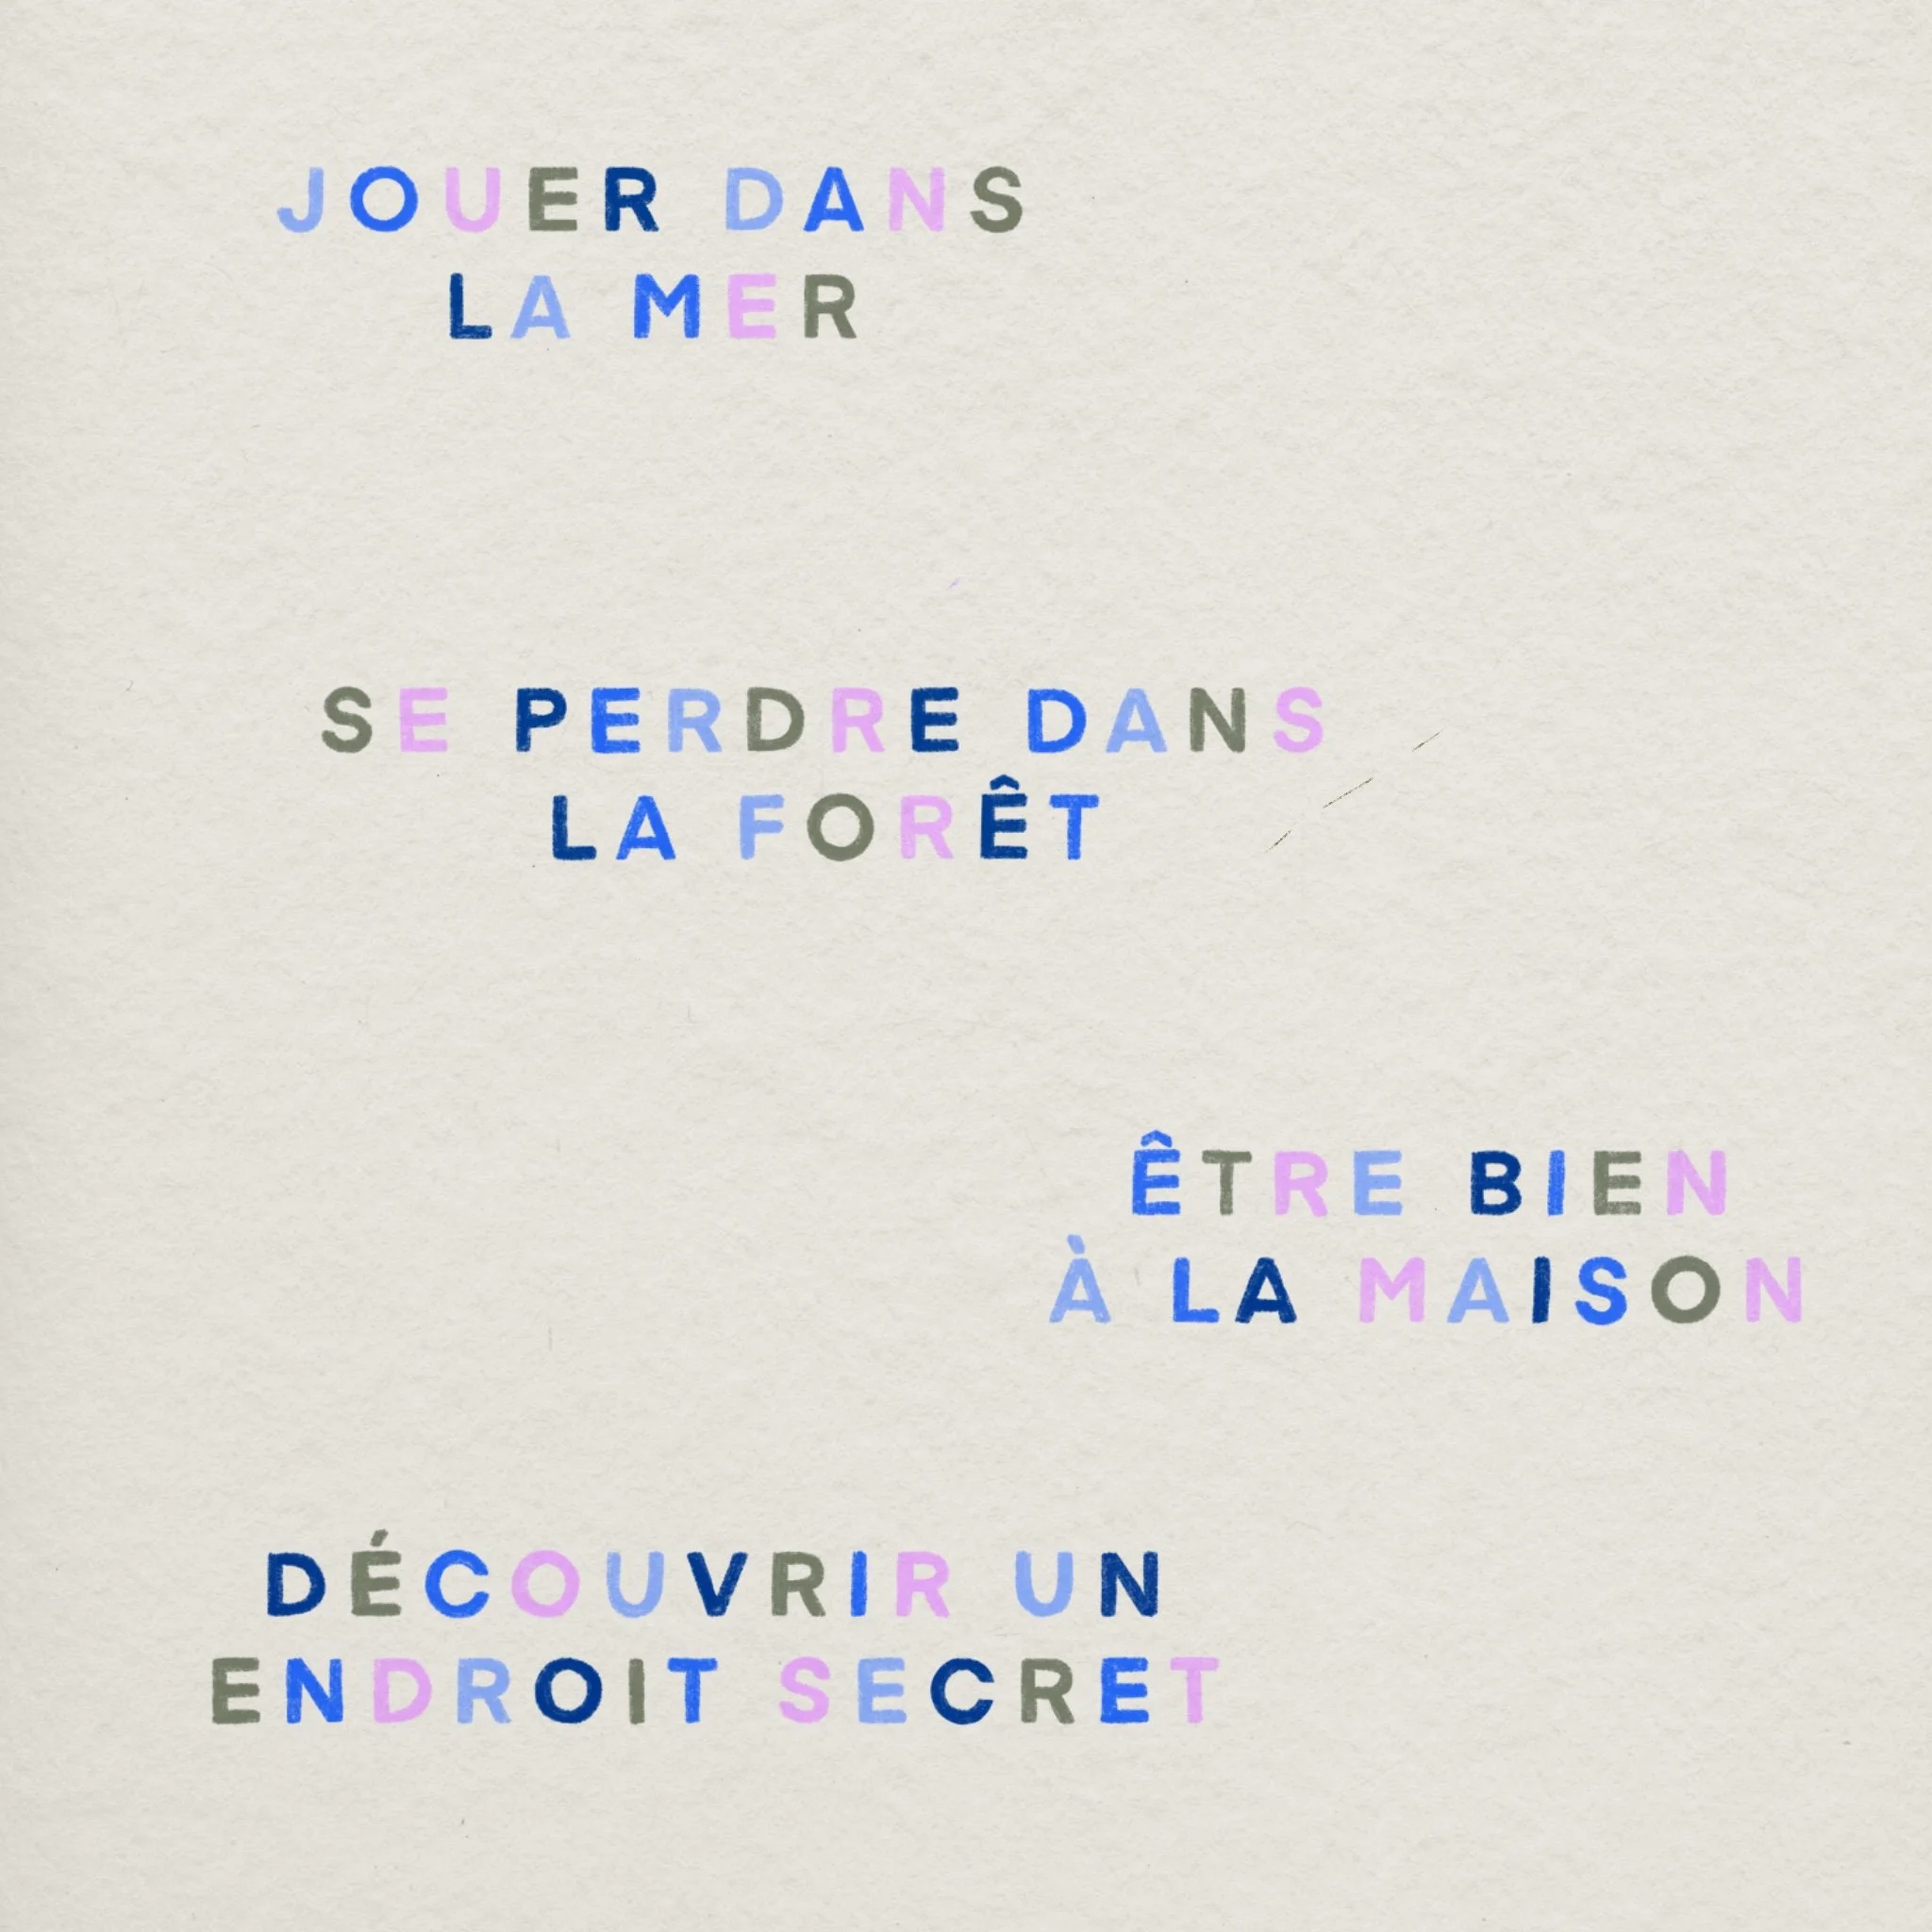 JOUER DANS
LA MER
SE PERDRE DANS
LA FORÊT
ÊTRE BIEN
À LA MAISON
DÉCOUVRIR UN
ENDROIT SECRET